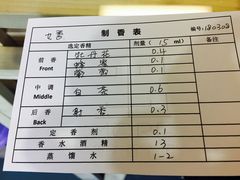 七香 制香表 编号:180308
选定香精 剂量( 15 ml) 备注
前香 Front 牡丹花 0.4
蜂蜜 0.1
葡萄 0.1
中调 Middle 白茶 0.6
后香 Back 麝香 0.3
定香剂 0.1
香水酒精 13
蒸馏水 1-2